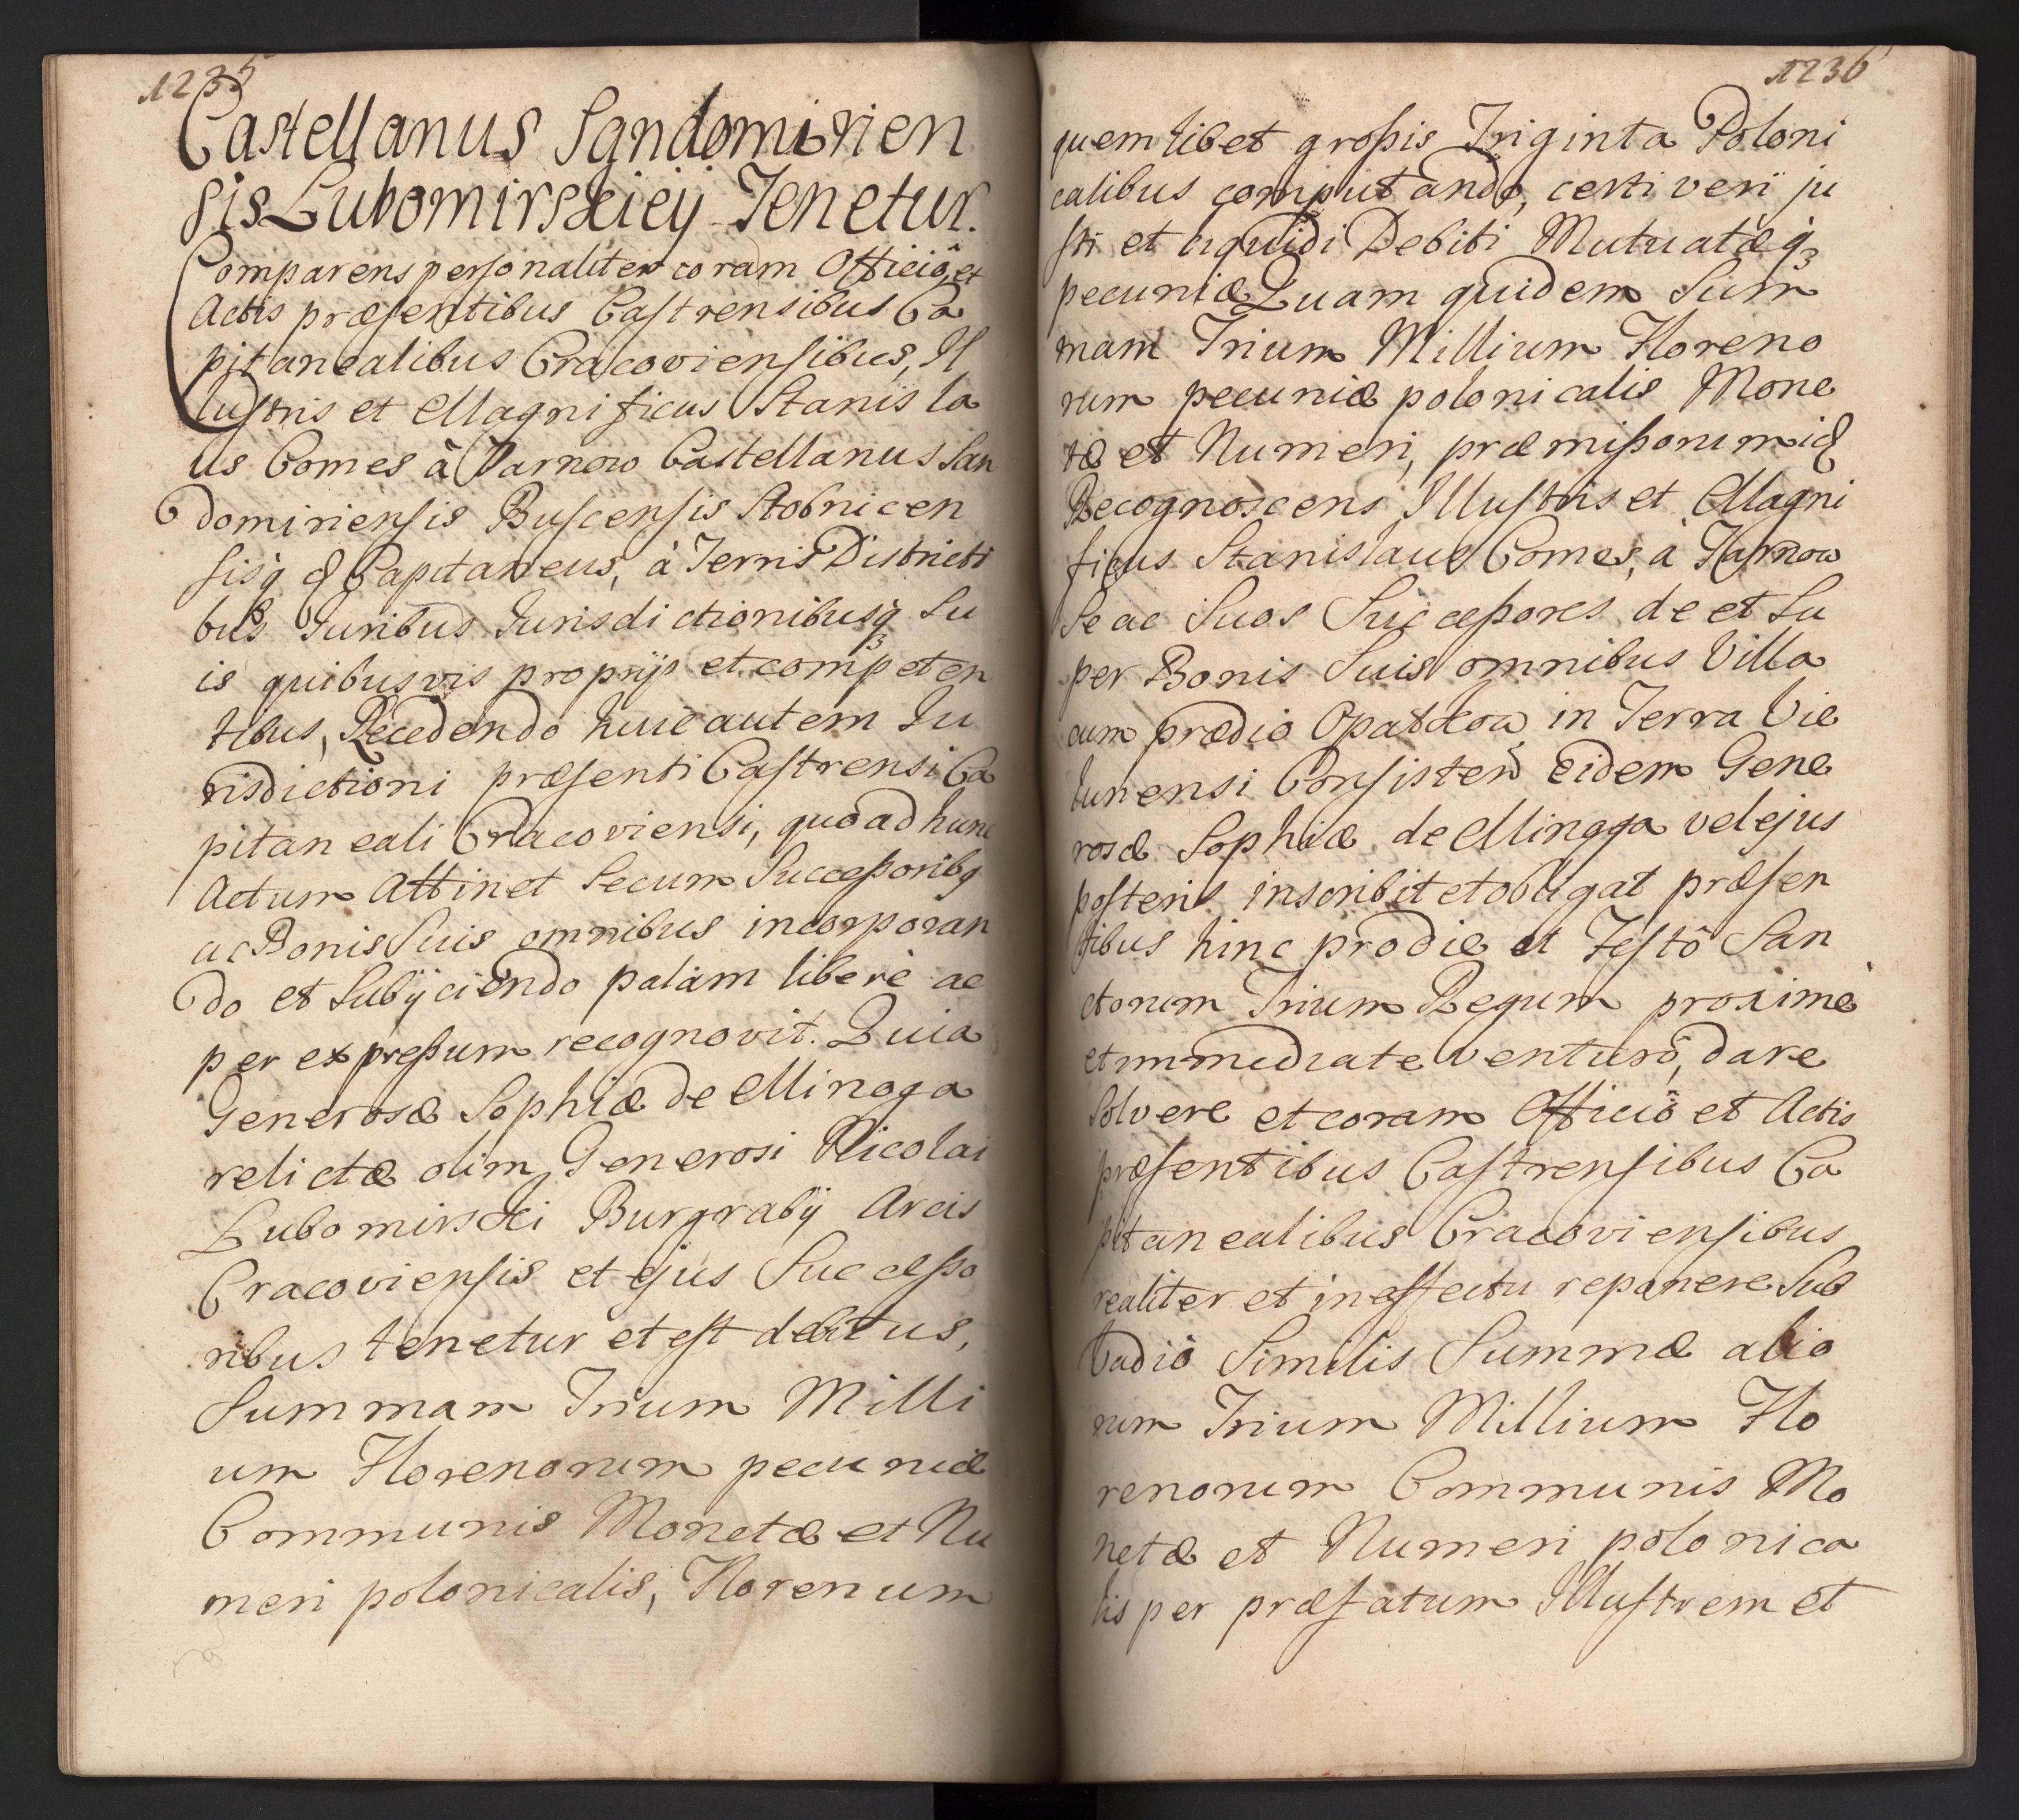 1235
Castellanus Sandomirien
sis Lubomirskieij Tenetur.
Comparens personaliter coram Officiô et
Actis præsentibus Castrensibus Ca
pitanealibus Cracoviensibus, Il
lustris et Magnificus Stanisla
us Comes â Tarnow Castellanus San
domiriensis Buscensis Stobnicen
sisqꝫ Capitaneus, à Terris Districti
bus Juribus Jurisdictionibusqꝫ Su
is quibusvis proprijs et competen
tibus, Recedendo huic autem Ju
risdictioni præsenti Castrensi Ca
pitaneali Cracoviensi, quoad hunc
Actum Attinet Secum Successoribq
ac Bonis Suis omnibus incorporan
do et Subijciendo palam liberè ac
per expressum recognovit. Quia
Generosæ Sophiæ de Minoga
relictæ olim Generosi Nicolai
Lubomirski Burgrabij Arcis
Cracoviensis et ejus Successo
ribus tenetur et est debitus,
Summam Trium Milli
um Florenorum pecuniæ
Communis Monetæ et Nu
meri polonicalis, Florenum
1236
quemlibet grossis Triginta Poloni
calibus computando, certi veri ju
sti et liquidi Debiti Mutuatæqꝫ
pecuniæ Quam quidem Sum
mam Trium Millium Floreno
rum pecuniæ polonicalis Mone
tæ et Numeri, præmissorum
Recognoscens Illustris et Magni
ficus Stanislaus Comes, à Tarnow
Se ac Suos Successores de et Su
per Bonis Suis omnibus Villa
cum prædio Opatkow in Terra Vie
lunensi Consisten̄ eidem Gene
rosæ Sophiæ de Mingga vel ejus
posteris inscribit et obligat præsen
tibus hinc prodie et Festô San
ctorum Trium Regum proximè
et immediate venturô, dare
Solvere et coram Officiô et Actis
præsentibus Castrensibus Ca
pitanealibus Cracoviensibus
realiter et in effectu reponere Sub
Vadiô Similis Summæ alio
rum Trium Millium Flo
renorum Communis Mo
netæ et Numeri polonica
lis per præfatum Illustrem et